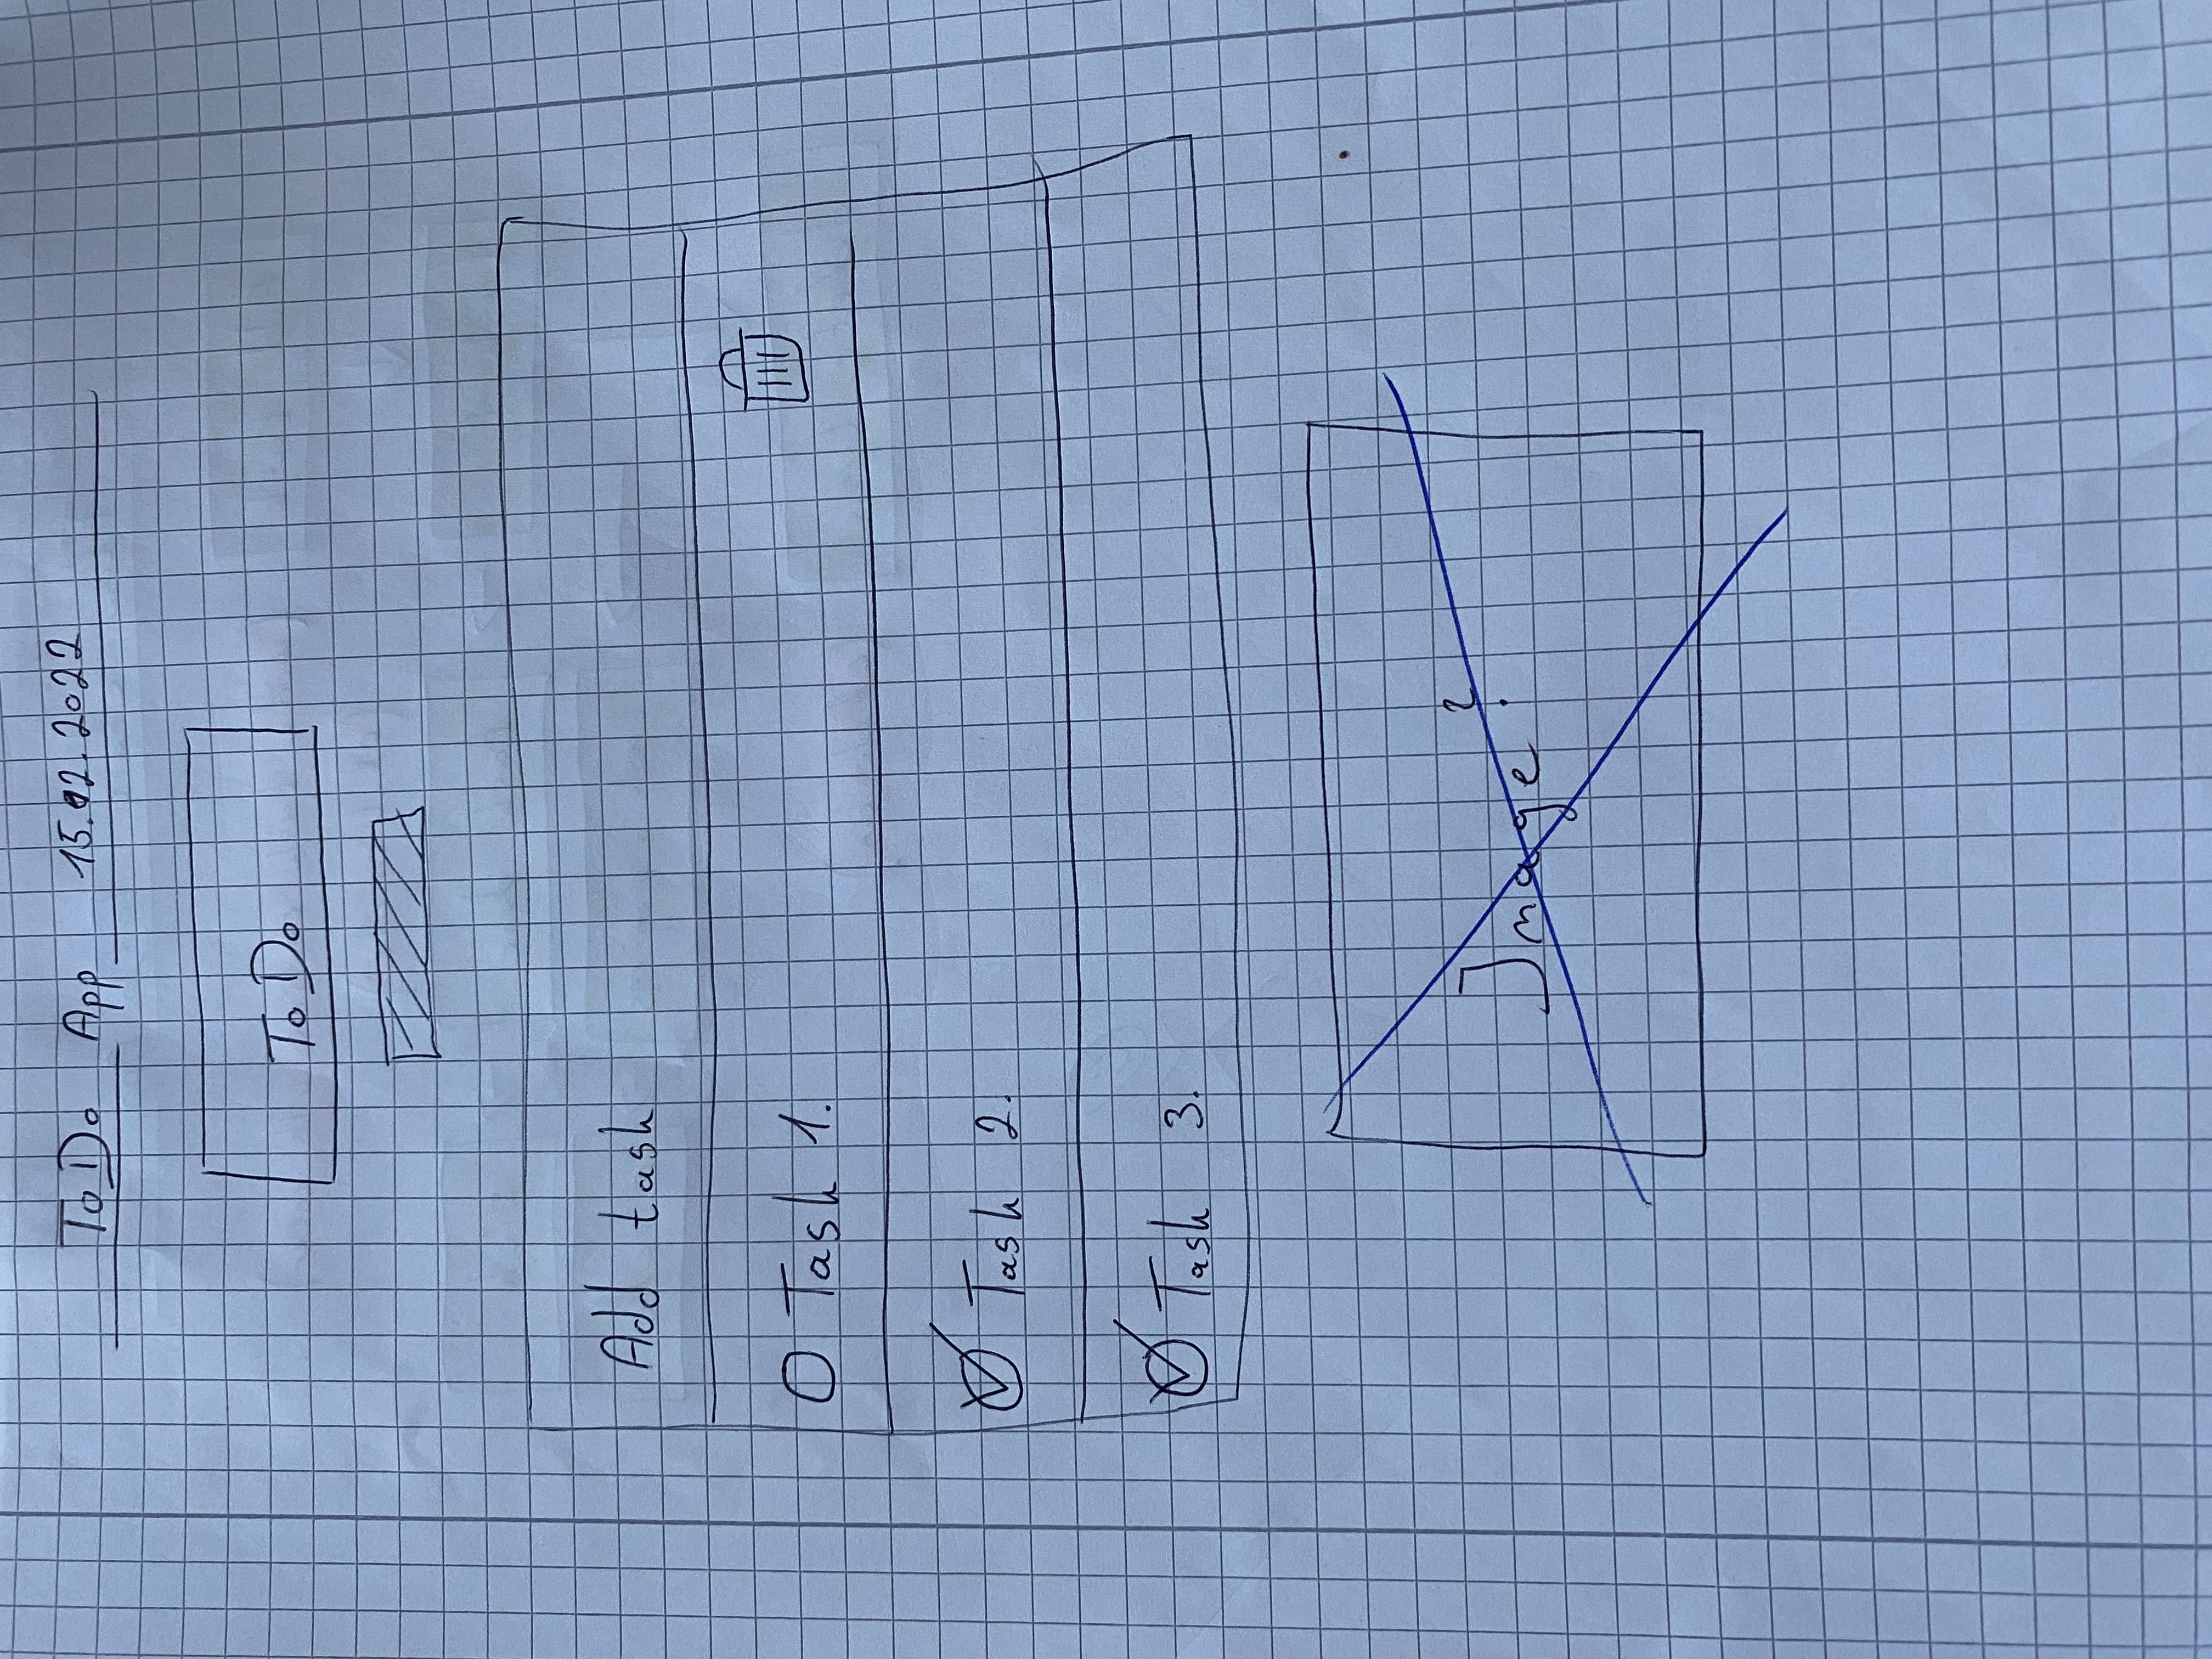 To Do App 15.02.2022
To Do
Add task
Task 1.
Task 2.
Task 3.
Image?